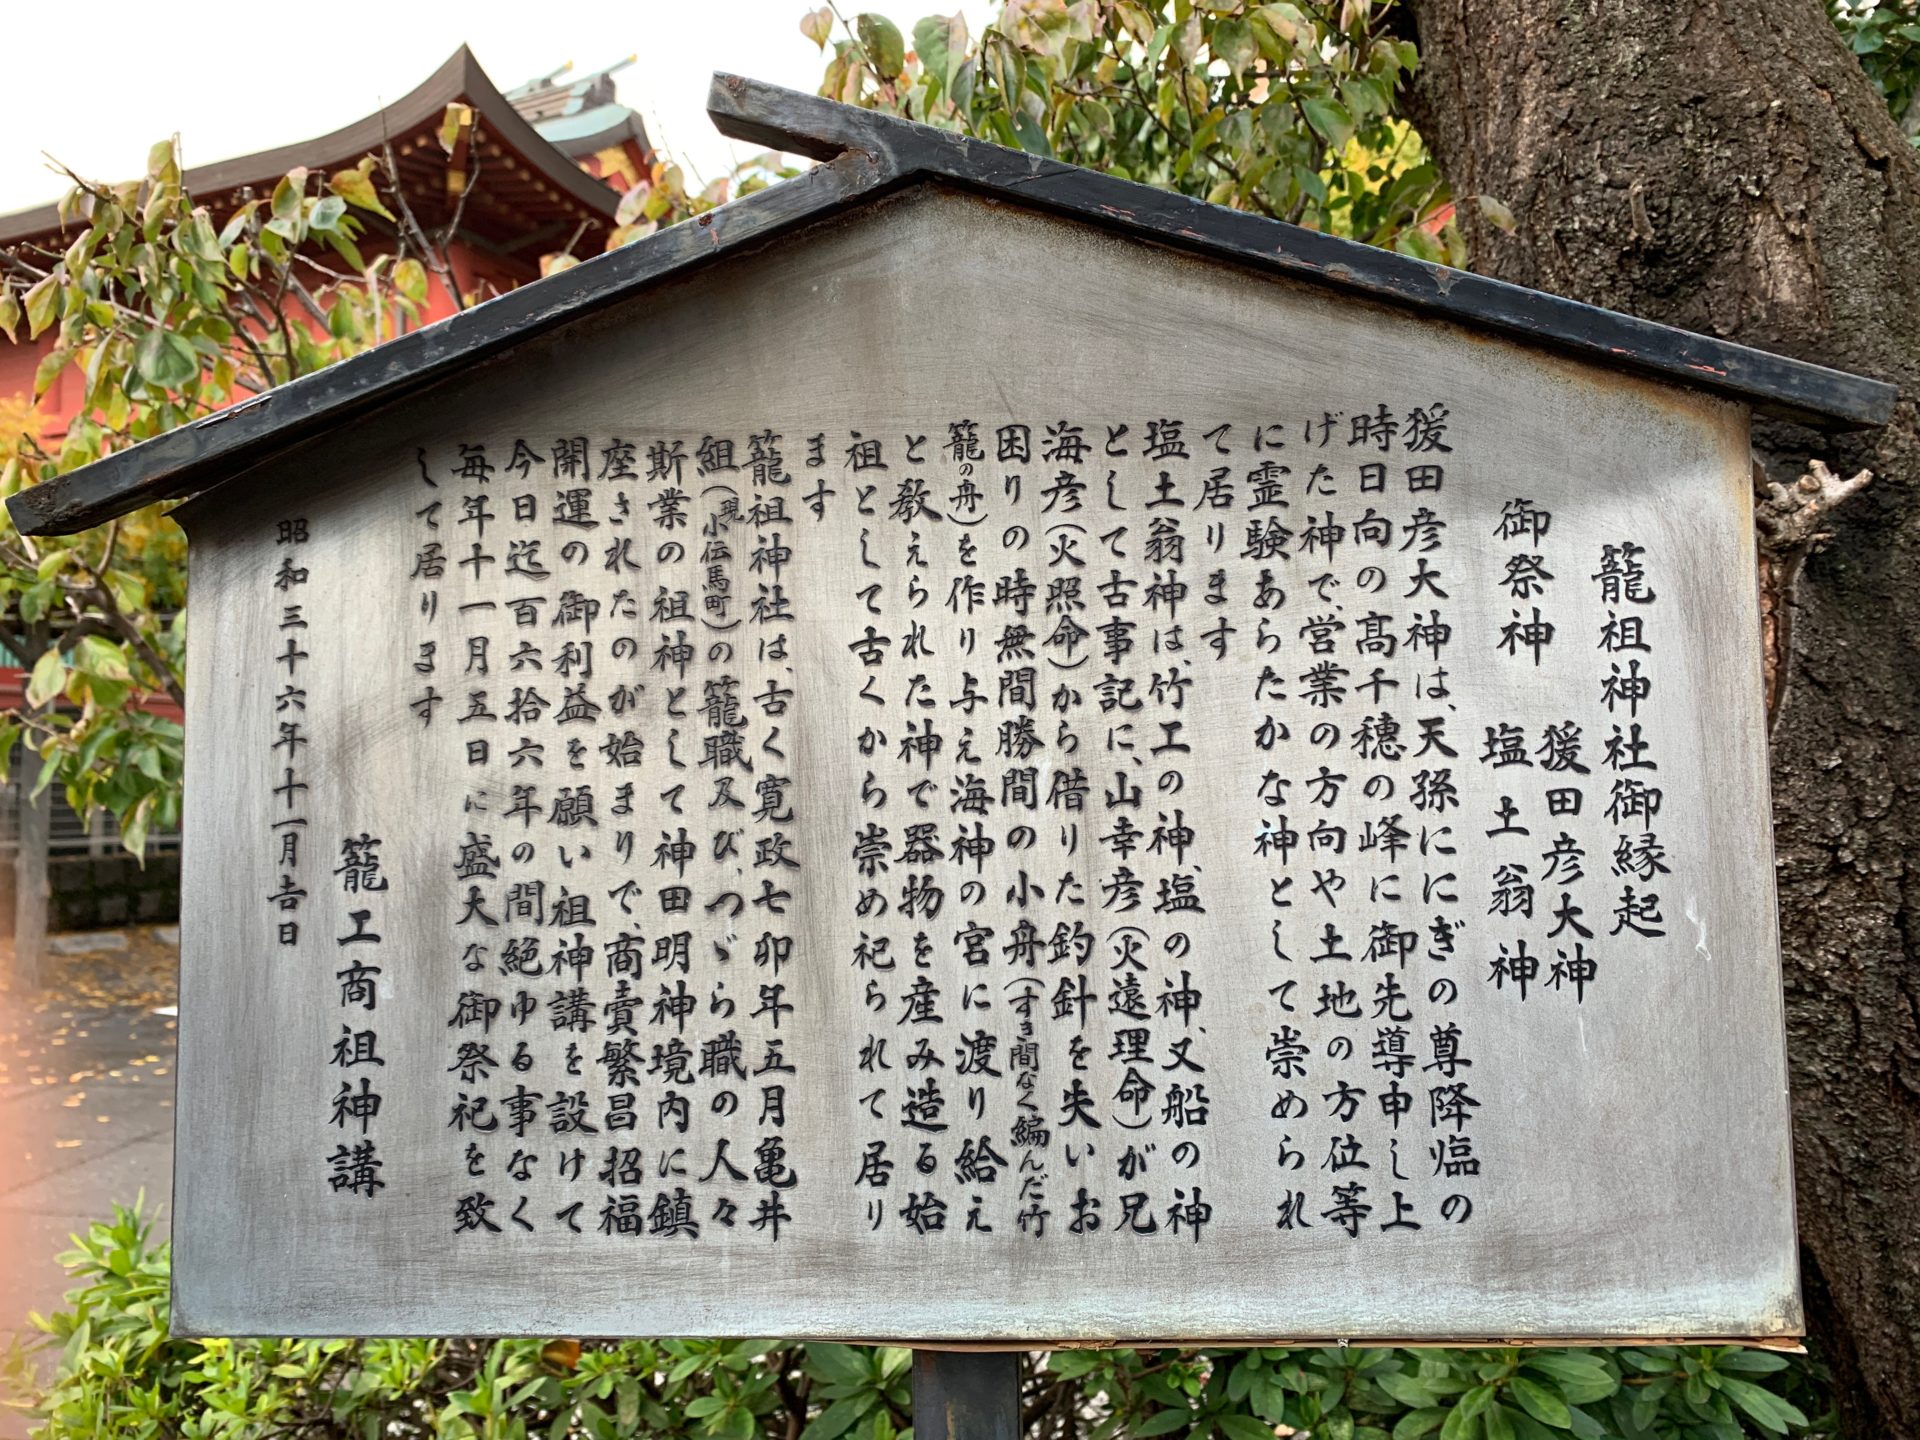 籠祖神社御縁起
御祭神 猨田彦大神
塩土翁神
猨田彦大神は、天孫ににぎの尊降臨の
時日向の高千穂の峰に御先導申し上
げた神で、営業の方向や土地の方位等
に霊験あらたかな神として崇められ
て居ります
塩土翁神は、竹工の神、塩の神、又船の神
として古事記に、山幸彦(火遠理命)が兄
海彦(火照命)から借りた釣針を失いお
困りの時無間勝間の小舟(すき間なく編んだ竹
籠の舟)を作り与え海神の宮に渡り給え
と教えられた神で器物を産み造る始
祖として古くから崇め祀られて居り
ます
籠祖神社は、古く寛政七卯年五月亀井
組(現小伝馬町)の籠職及び、つゞら職の人々
斯業の祖神として神田明神境内に鎮
座されたのが始まりで、商賣繁昌招福
開運の御利益を願い祖神講を設けて
今日迄百六拾六年の間絶ゆる事なく
毎年十一月五日に盛大な御祭祀を致
して居ります
籠工商祖神講
昭和三十六年十一月吉日